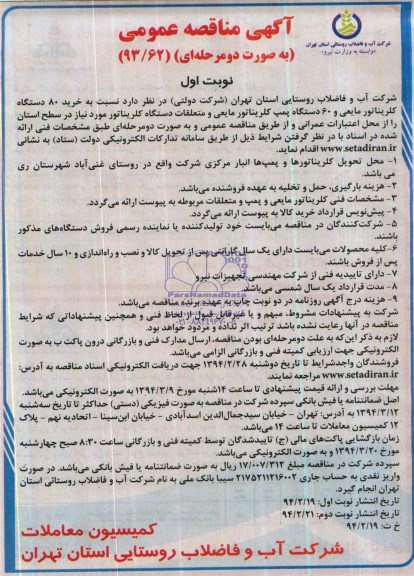 شرکت آب و فاضلاب روستایی استان تهران
وابسته به وزارت نیرو
آگهی مناقصه عمومی
(به صورت دومرحله‌ای) (۹۳/۶۲)
نوبت اول
شرکت آب و فاضلاب روستایی استان تهران (شرکت دولتی) در نظر دارد نسبت به خرید ۸۰ دستگاه
کلریناتور مایعی و ۶۰ دستگاه پمپ کلریناتور مایعی و متعلقات دستگاه کلریناتور مورد نیاز در سطح استان
را از محل اعتبارات عمرانی و از طریق مناقصه عمومی و به صورت دومرحله‌ای طبق مشخصات فنی ارائه
شده در اسناد با در نظر گرفتن شرایط ذیل از طریق سامانه تدارکات الکترونیکی دولت (ستاد) به نشانی
www.setadiran.ir اقدام نماید.
۱- محل تحویل کلریناتورها و پمپ‌ها انبار مرکزی شرکت واقع در روستای غنی‌آباد شهرستان ری
می باشد.
۲- هزینه بارگیری، حمل و تخلیه به عهده فروشنده می‌باشد.
۳- مشخصات فنی کلریناتور مایعی و پمپ و متعلقات مربوطه به پیوست ارائه می‌گردد.
۴- پیش‌نویس قرارداد خرید کالا به پیوست ارائه می‌گردد.
۵- شرکت‌کنندگان در مناقصه می‌بایست خود تولیدکننده یا نماینده رسمی فروش دستگاه‌های مذکور
باشند.
۶-کلیه محصولات می‌بایست دارای یک سال گارانتی پس از تحویل کالا و نصب و راه‌اندازی و ۱۰ سال خدمات
پس از فروش باشند.
۷- دارای تاییدیه فنی از شرکت مهندسی تجهیزات نیرو
۸- مدت قرارداد یک سال شمسی می‌باشد.
۹- هزینه درج آگهی روزنامه در دو نوبت چاپ به عهده برنده مناقصه می‌باشد.
شرکت به پیشنهادات مشروط، مبهم و یا غیرقابل قبول از لحاظ فنی و همچنین پیشنهاداتی که شرایط
مناقصه در آنها رعایت نشده باشد ترتیب اثر نداده و مردود خواهد بود.
لازم به ذکر این‌که به علت دومرحله‌ای بودن مناقصه، ارسال مدارک فنی و بازرگانی درون پاکت ب به صورت
الکترونیکی جهت ارزیابی کمیته فنی و بازرگانی الزامی می‌باشد.
فروشندگان واجدشرایط تا تاریخ دوشنبه ۱۳۹۴/۲/۲۸ جهت دریافت الکترونیکی اسناد مناقصه به آدرس:
www.setadiran.ir مراجعه نمایند.
مهلت بررسی و ارائه قیمت پیشنهادی تا ساعت ۱۴شنبه مورخ ۱۳۹۴/۳/۹ به صورت الکترونیکی می‌باشد.
اصل ضمانتنامه یا فیش بانکی سپرده شرکت در مناقصه به صورت فیزیکی (دستی) حداکثر تا تاریخ سه‌شنبه
۱۳۹۴/۳/۱۲ به آدرس: تهران - خیابان سیدجمال‌الدین اسدآبادی - خیابان ابن‌سینا - اتحادیه نهم - پلاک
۱۲ کمیسیون معاملات تا ساعت ۱۴ می‌باشد.
زمان بازگشایی پاکت‌های مالی (ج) تاییدشدگان توسط کمیته فنی و بازرگانی ساعت ۸:۳۰ صبح چهارشنبه
مورخ ۱۳۹۴/۳/۲۰ و به صورت الکترونیکی می‌باشد.
سپرده شرکت در مناقصه مبلغ ۱۷/۰۰۷/۳۱۲ ریال به صورت ضمانتنامه یا فیش بانکی می‌باشد. در صورت
واریز نقدی به حساب جاری ۲۱۷۵۲۱۱۲۱۶۰۰۲ سیبا بانک ملی به نام شرکت آب و فاضلاب روستائی استان
تهران انجام گیرد.
تاریخ انتشار نوبت اول: ۹۴/۲/۱۹
تاریخ انتشار نوبت دوم: ۹۴/۲/۲۱
خ ت: ۹۴/۲/۱۹
کمیسیون معاملات
شرکت آب و فاضلاب روستایی استان تهران